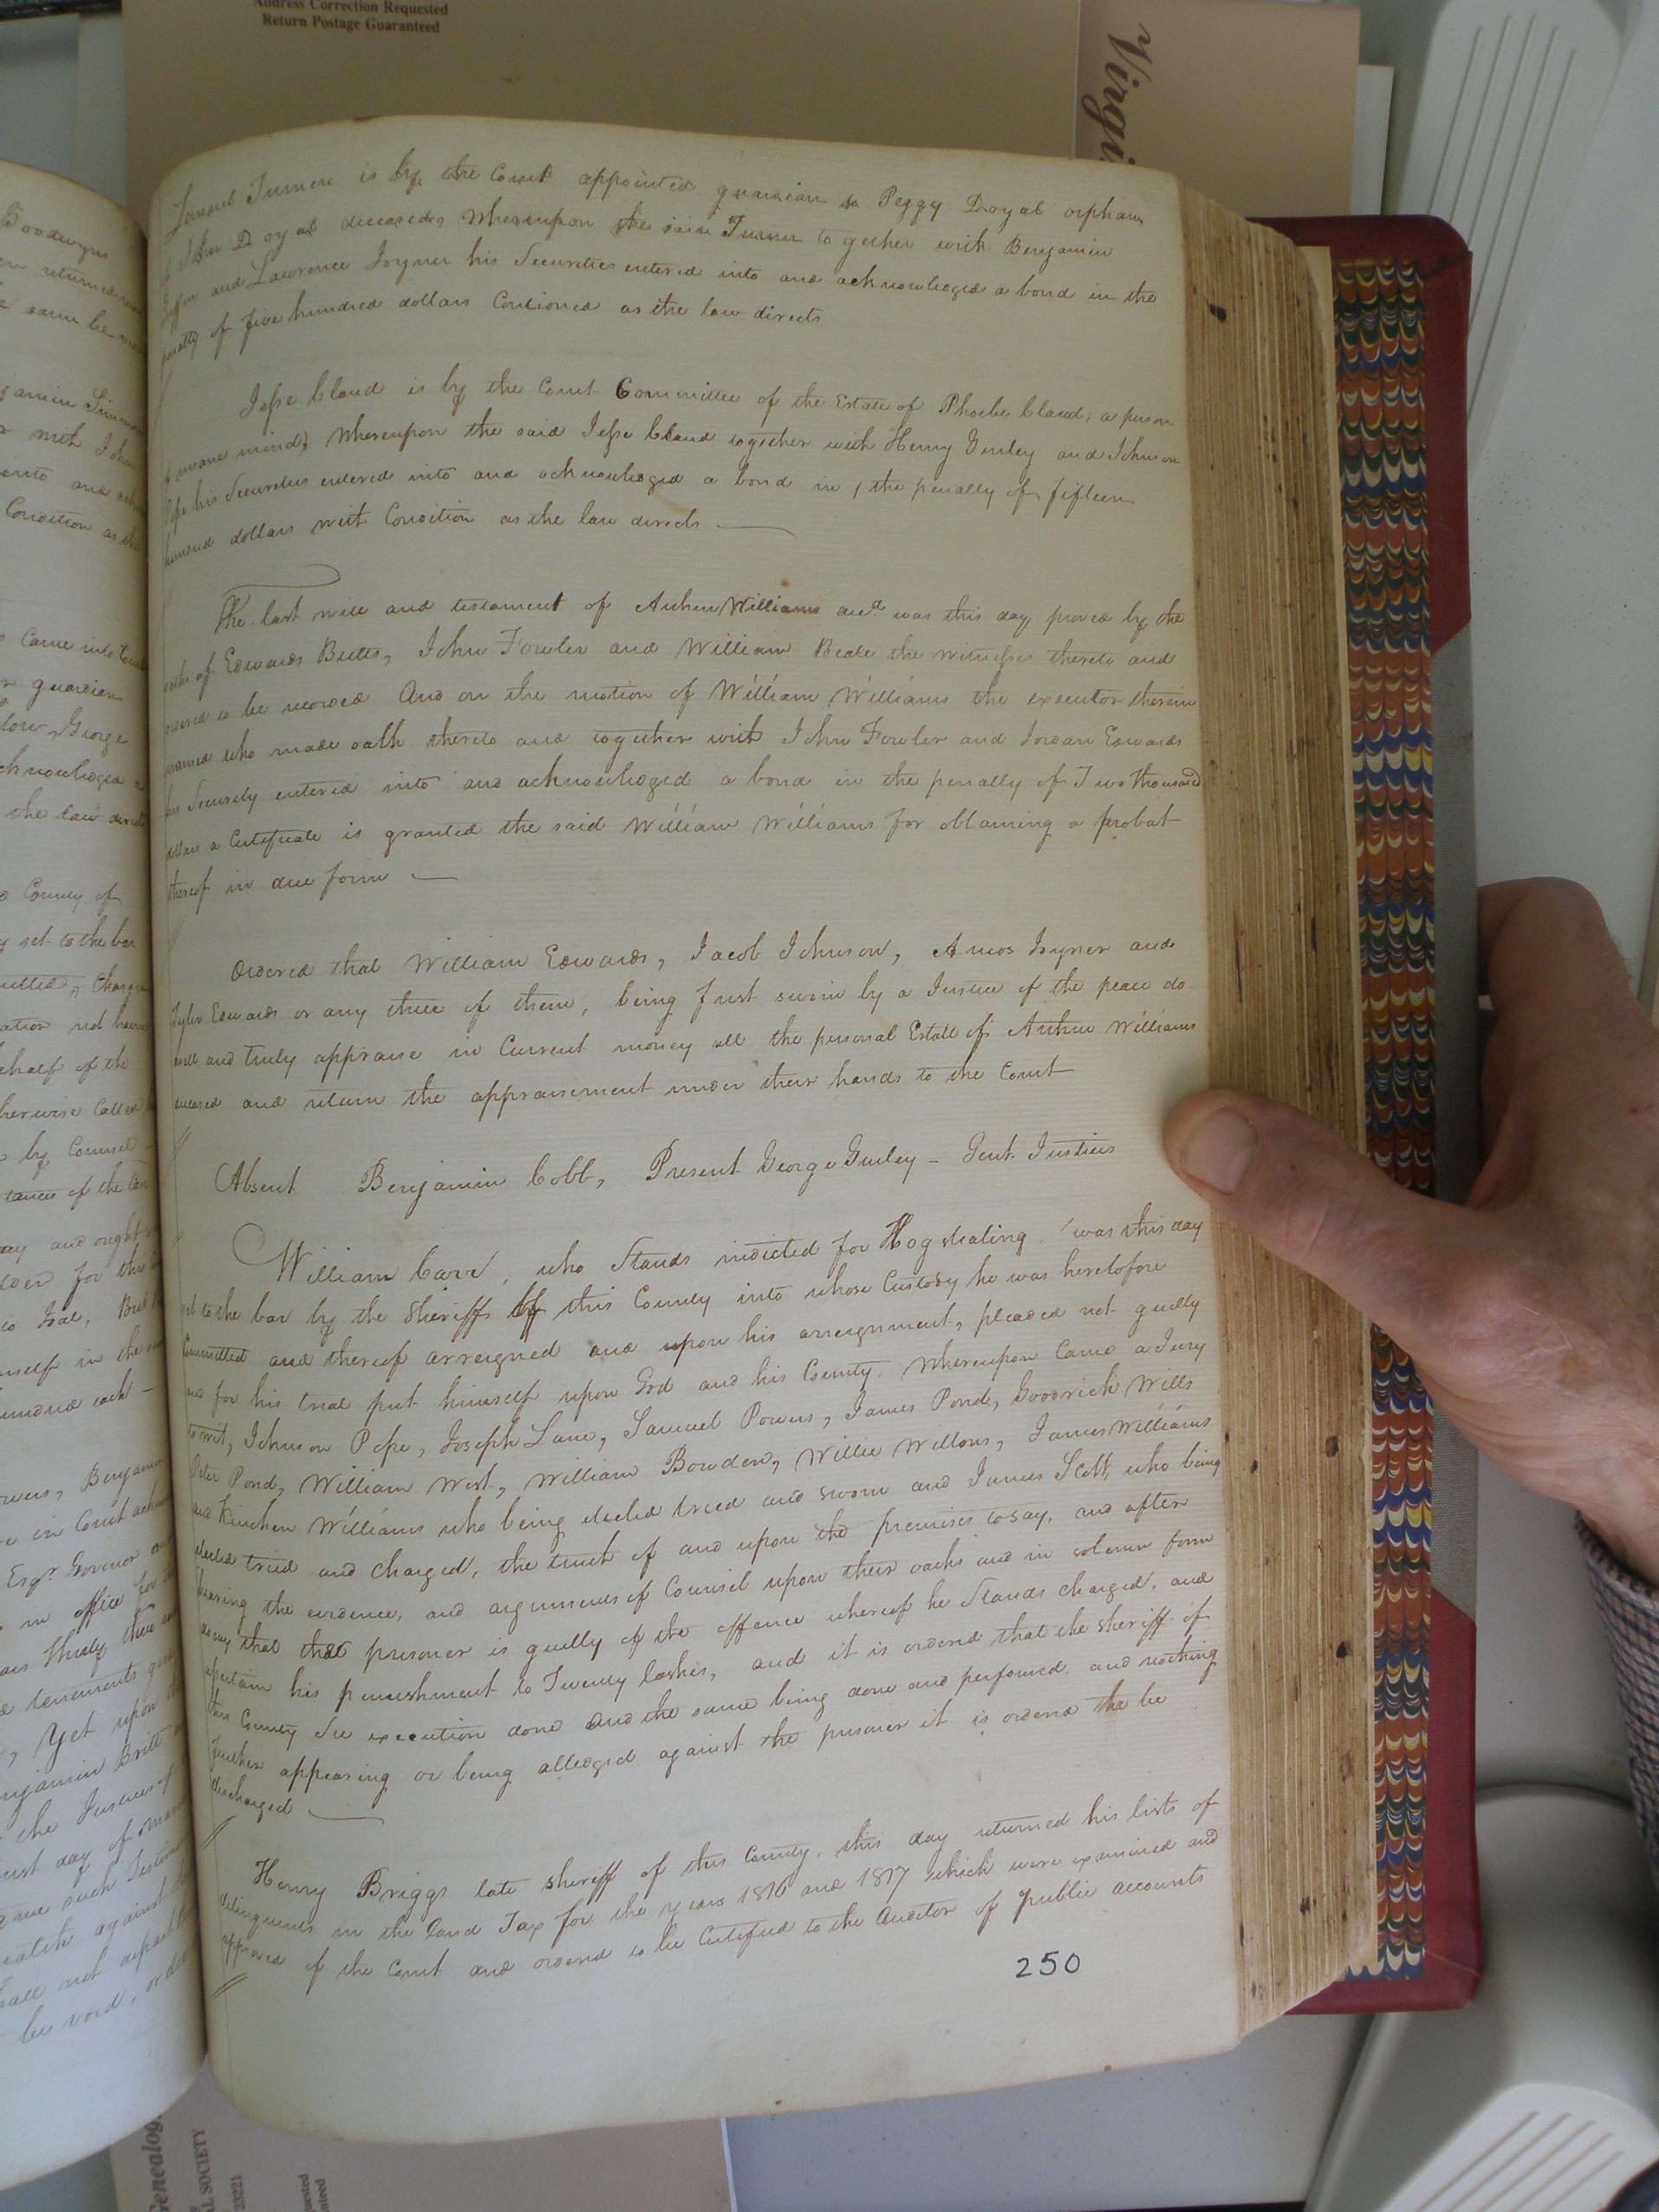 Address Correction Requested
Return Postage Guaranteed
Virgi
Goodwyn
returned
same be
jamin Simmons
with John
into and ack
Condition as the
came into Court
guardian
George
acknowledged
the law direct
County of
set to the bar
Charge
half of the
herwise Called
by Counsel
tances of the
and ought
for th
But
mself in the
each
Benjamin
in Court ack
Esqr. Govenor and
in office for
thirty three
tenements
, Yet upon
njamin Britt
the Justices of
day of
me such
against
not depart
be void, or
Samuel Turner is by the Court appointed guardian to Peggy Doyal orphan
of John Doyal deceased, Whereupon the said Turner together with Benjamin
Griffin and Lawrence Joyner his Securities entered into and acknowledged a bond in the
penalty of five hundred dollars Conditioned as the law directs
Jesse Bland is by the Court Committee of the Estate of Phoebe Bland, a person
of insane mind, Whereupon the said Jesse Bland together with Henry Gurley and Johnson
Pope his Securities entered into and acknowledged a bond in the penalty of fifteen
hundred dollars with Condition as the law directs
The last will and testament of Arthur Williams decd. was this day proved by the
oaths of Edwards Butts, John Fowler and William Beale the witnesses thereto and
ordered to be recorded And on the motion of William Williams the executor therein
named who made oath thereto and together with John Fowler and Jordan Edwards
his Security entered into and acknowledged a bond in the penalty of Two thousand
dollars a Certificate is granted the said William Williams for obtaining a probat
thereof in due form
Ordered that William Edwards, Jacob Johnson, Amos Joyner and
Edwards or any three of them, being first sworn by a Justice of the peace do
well and truly appraise in Current money all the personal Estate of Arthur Williams
deceased and return the appraisement under their hands to the Court
Absent Benjamin Cobb, Present George Gurley – Gent. Justices
William Carr, who Stands indicted for Hog stealing was this day
set to the bar by the Sheriff of this County into whose Custody he was heretofore
Committed and thereof arreigned and upon his arreignment, pleaded not guilty
and for his trial put himself upon God and his County. Whereupon Came a Jury
to wit, Johnson Pope, Joseph Lane, Samuel Powers, James Pond, Goodrich Wills
Peter Pond, William West, William Bowden, Willie Wellons, James Williams
and Kinchen Williams who being elected tried and sworn and James Scott, who being
elected tried and charged, the truth of and upon the premises to say, and after
hearing the evidence, and arguments of Counsel upon their oaths and in solemn form
do say that the prisoner is guilty of the offence whereof he Stands charged, and
assertain his punishment to Twenty lashes, and it is ordered that the sheriff of
this County do execution done And the same being done and performed, and nothing
further appearing or being alledged against the prisoner it is ordered tha he
discharged
Henry Briggs late sheriff of this County, this day returned his lists of
delinquents in the land Tax for the years 1816 and 1817 which were examined and
approved of the Court and ordered to be Certified to the Auditor of public accounts
250
Genealog
AL SOCIETY
23221